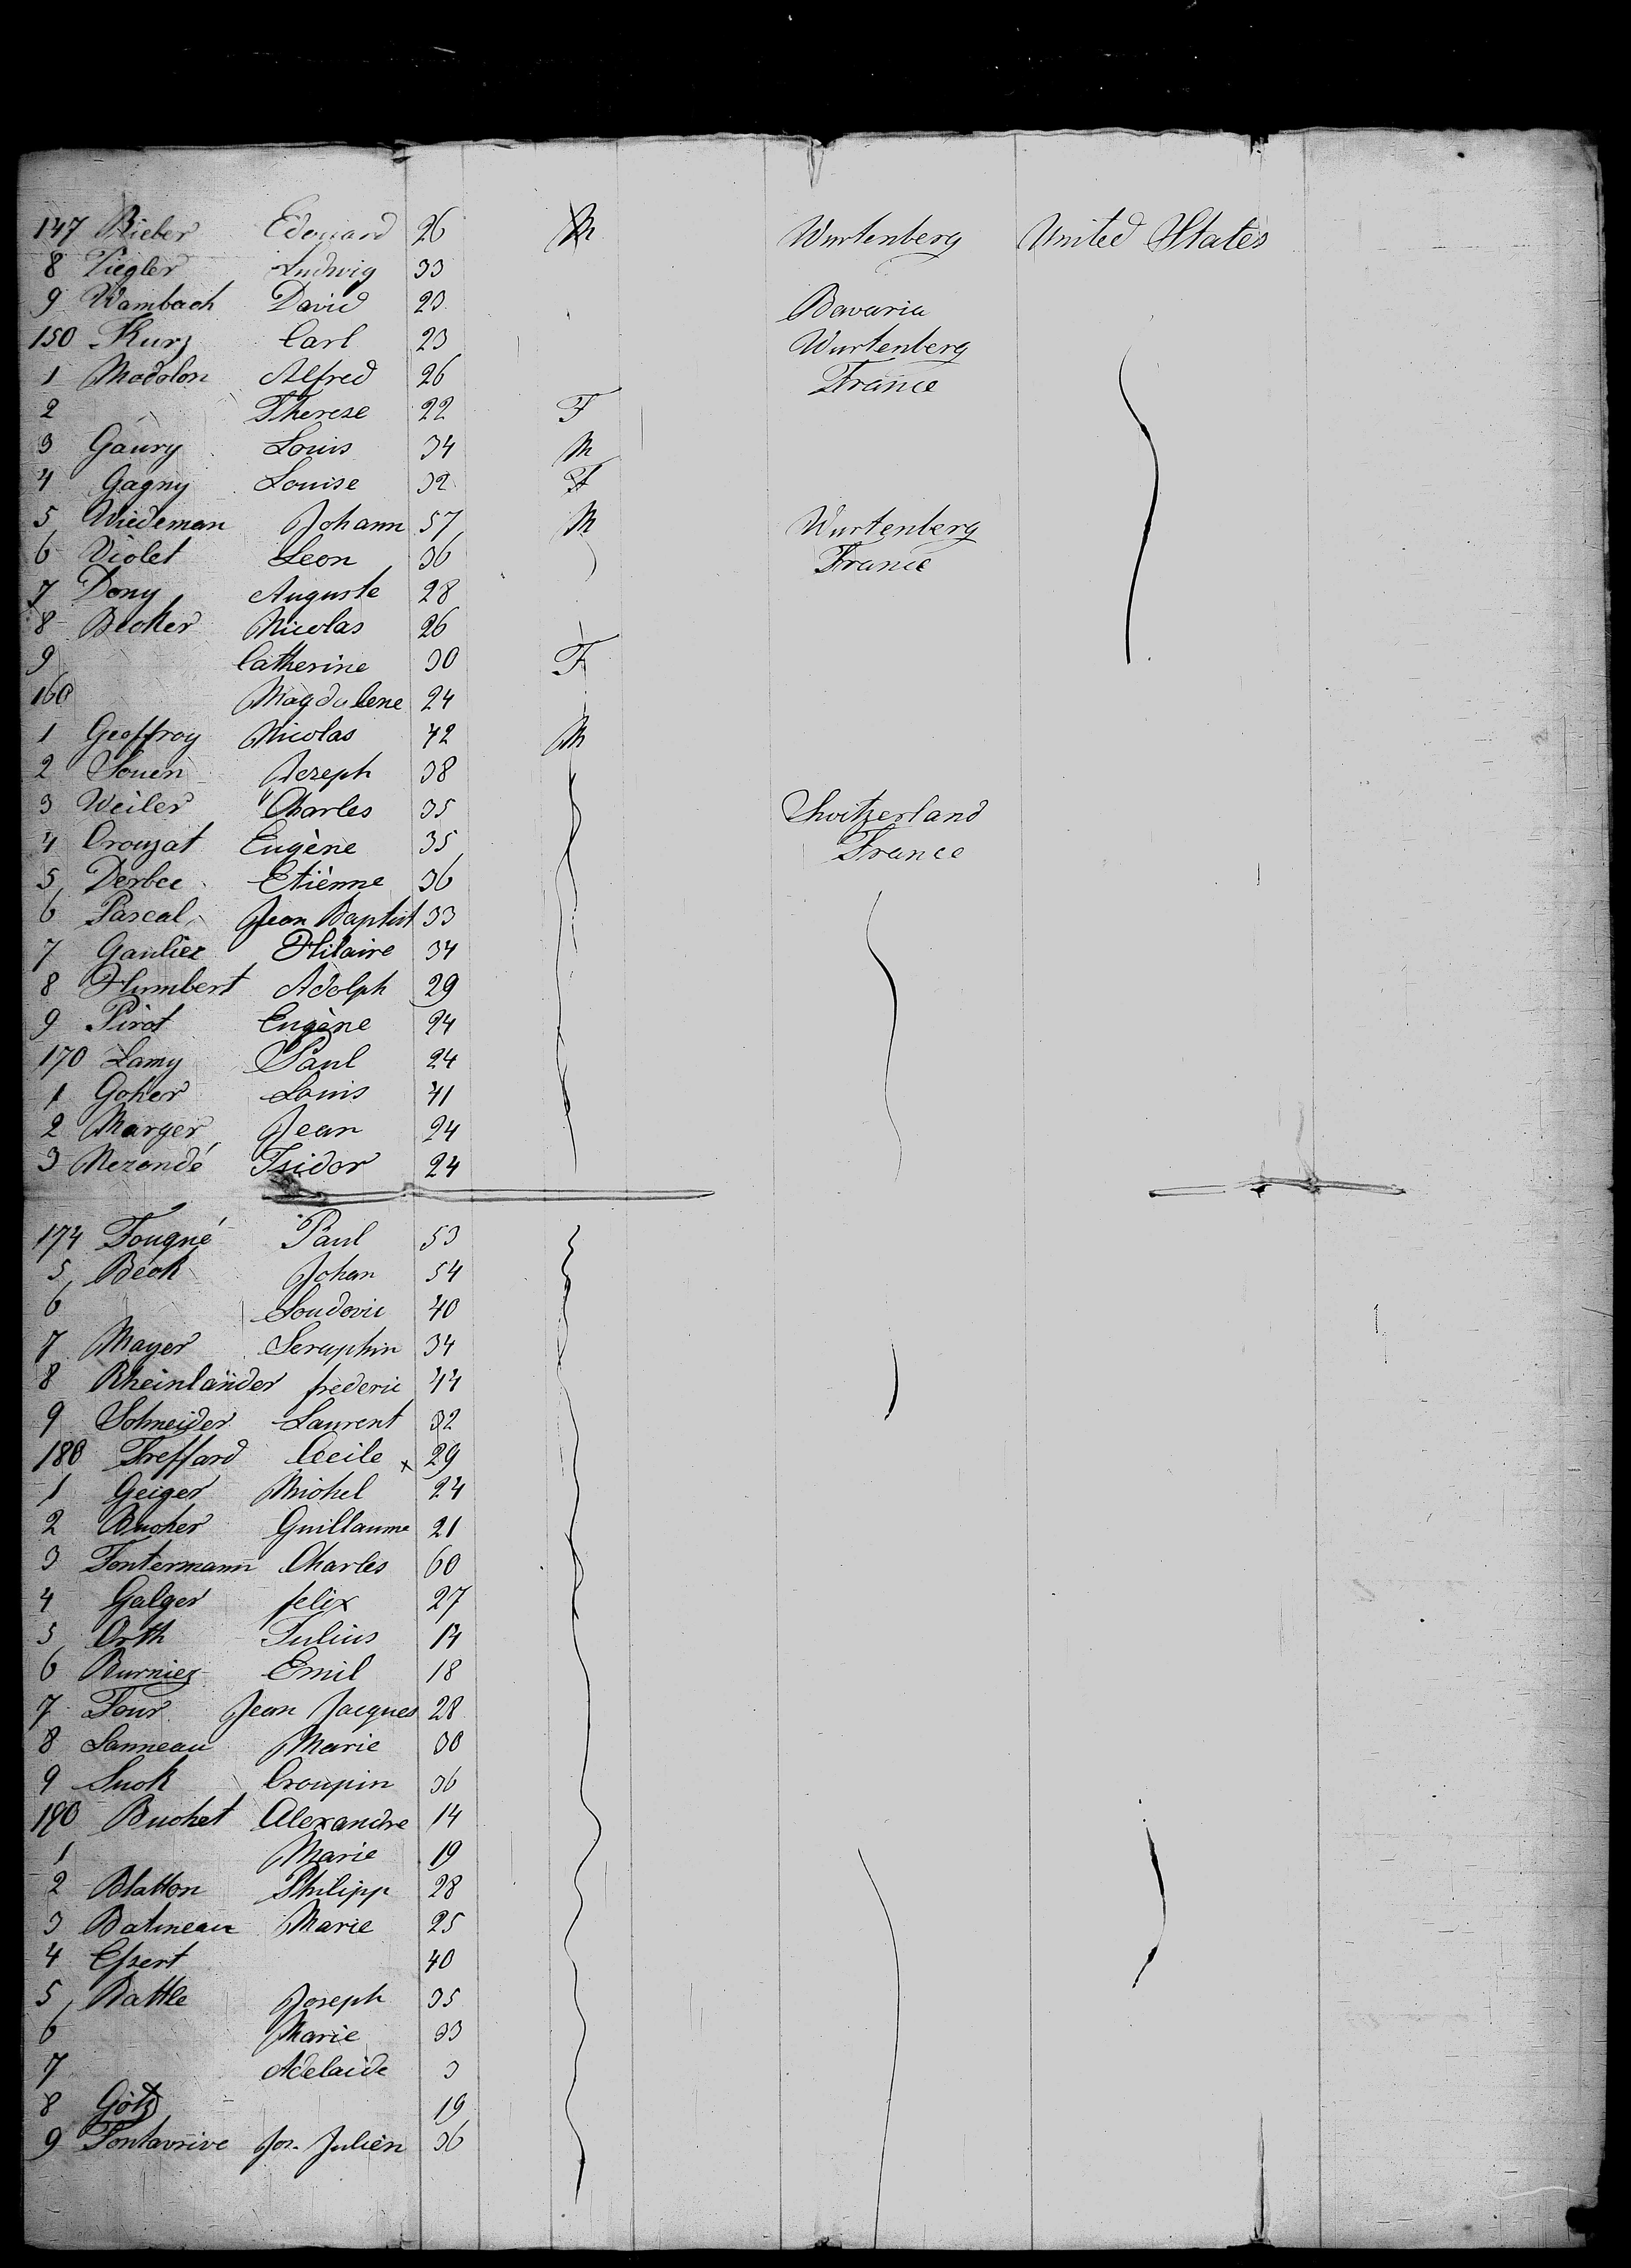 147 Bieler Edouard 26 M Wurtenberg United States
8 Ziegler Ludwig 33
9 Wambach David 23 Bavaria
150 Kurz Carl 23 Wurtenberg
1 Madolon Alfred 26 France
2 Therese 22 F
3 Gaury Louis 34 M
4 Gagny Louise 32 F
5 Wiedeman Johann 57 M Wurtenberg
6 Violet Leon 36 France
7 Dony Auguste 28
8 Becker Nicolas 26
9 Catherine 30 F
160 Magdalene 24
1 Geoffroy Nicolas 42 M
2 Souen Joseph 38
3 Weiler Charles 35 Switzerland
4 Crouzat Eugène 35 France
5 Derbee Etiènne 36
6 Pascal Jean Baptist 33
7 Gaulier Hilaire 34
8 Humbert Adolph 29
9 Pirot Eugène 24
170 Lamy Paul 24
1 Goher Louis 41
2 Marger Jean 24
3 Mezondé Isidor 24
174 Fougné Paul 53
5 Beck Johan 54
6 Loudovic 40
7 Mayer Seraphin 34
8 Rheinländer frederic 44
9 Schneider Laurent 32
180 Treffard Cecile x 29
1 Geiger Michel 24
2 Bucher Guillaume 21
3 Fontermann Charles 60
4 Galger felix 27
5 Orth Julius 14
6 Burniez Emil 18
7 Four Jean Jacques 28
8 Lanneau Marie 30
9 Suck Croupin 36
190 Buchet Alexandre 14
1 Marie 19
2 Blatton Philipp 28
3 Batineau Marie 25
4 Essert 40
5 Battle Joseph 35
6 Marie 33
7 Adelaide 3
8 Götz 19
9 Fontavrive Jos. Julièn 36